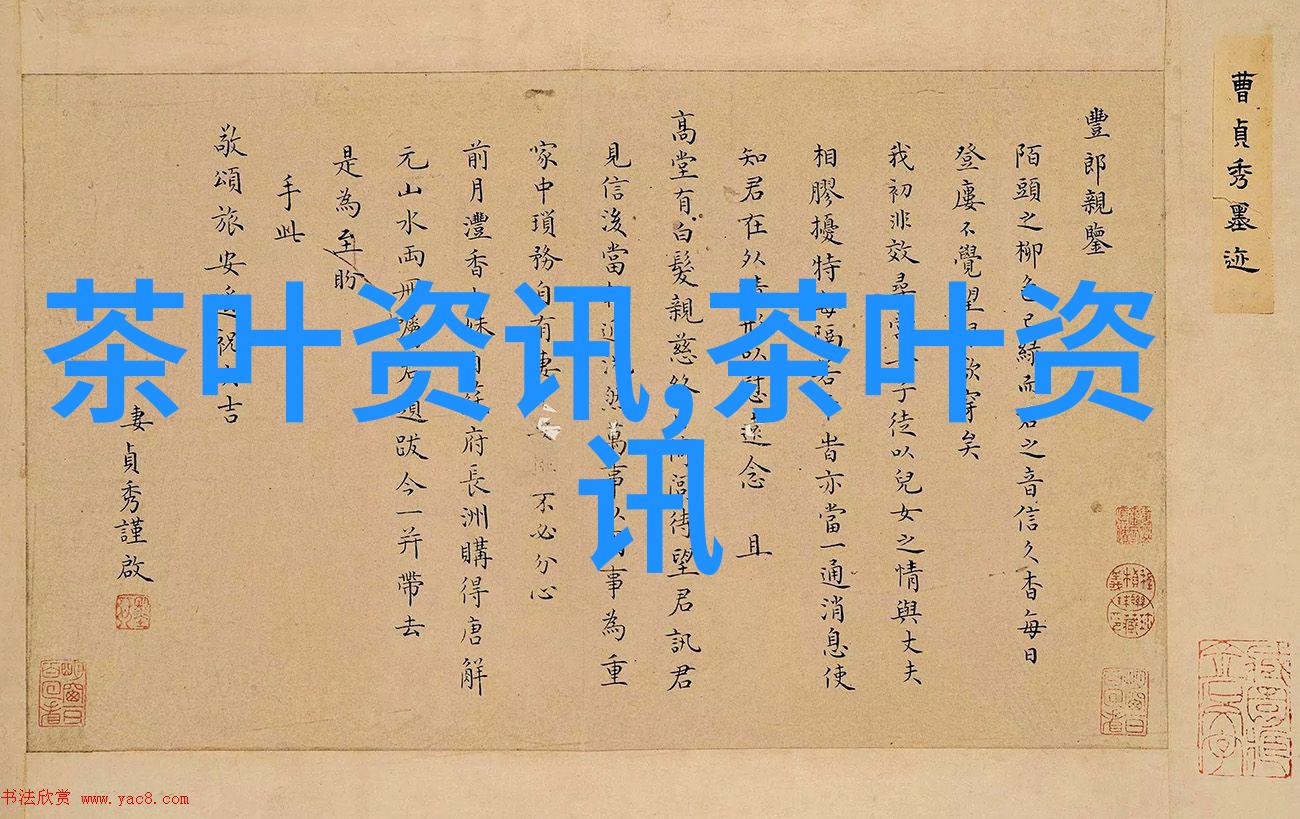 曹貞秀墨迹
豐郎親鑒
陌頭之柳色已綺而君之音信久杳每日
登廔不覺望欲穿矣
我初非效尋子徒以兒女之情與丈夫
相膠擾特每隔若昔亦當一通消息使
知君在外形以慰遠念 且
高堂有白髮親慈倚閭待望君訊君
見信後當萬事以事為重
家中瑣務自有妻 不必分心
前月灃香妹府長洲購得唐解
元山水兩冊題跋今一并帶去
是為至盼
手此
敬頌旅安祝吉
妻貞秀謹啟
茶叶资讯,茶叶资
讯
书法欣赏 www.yac8.com